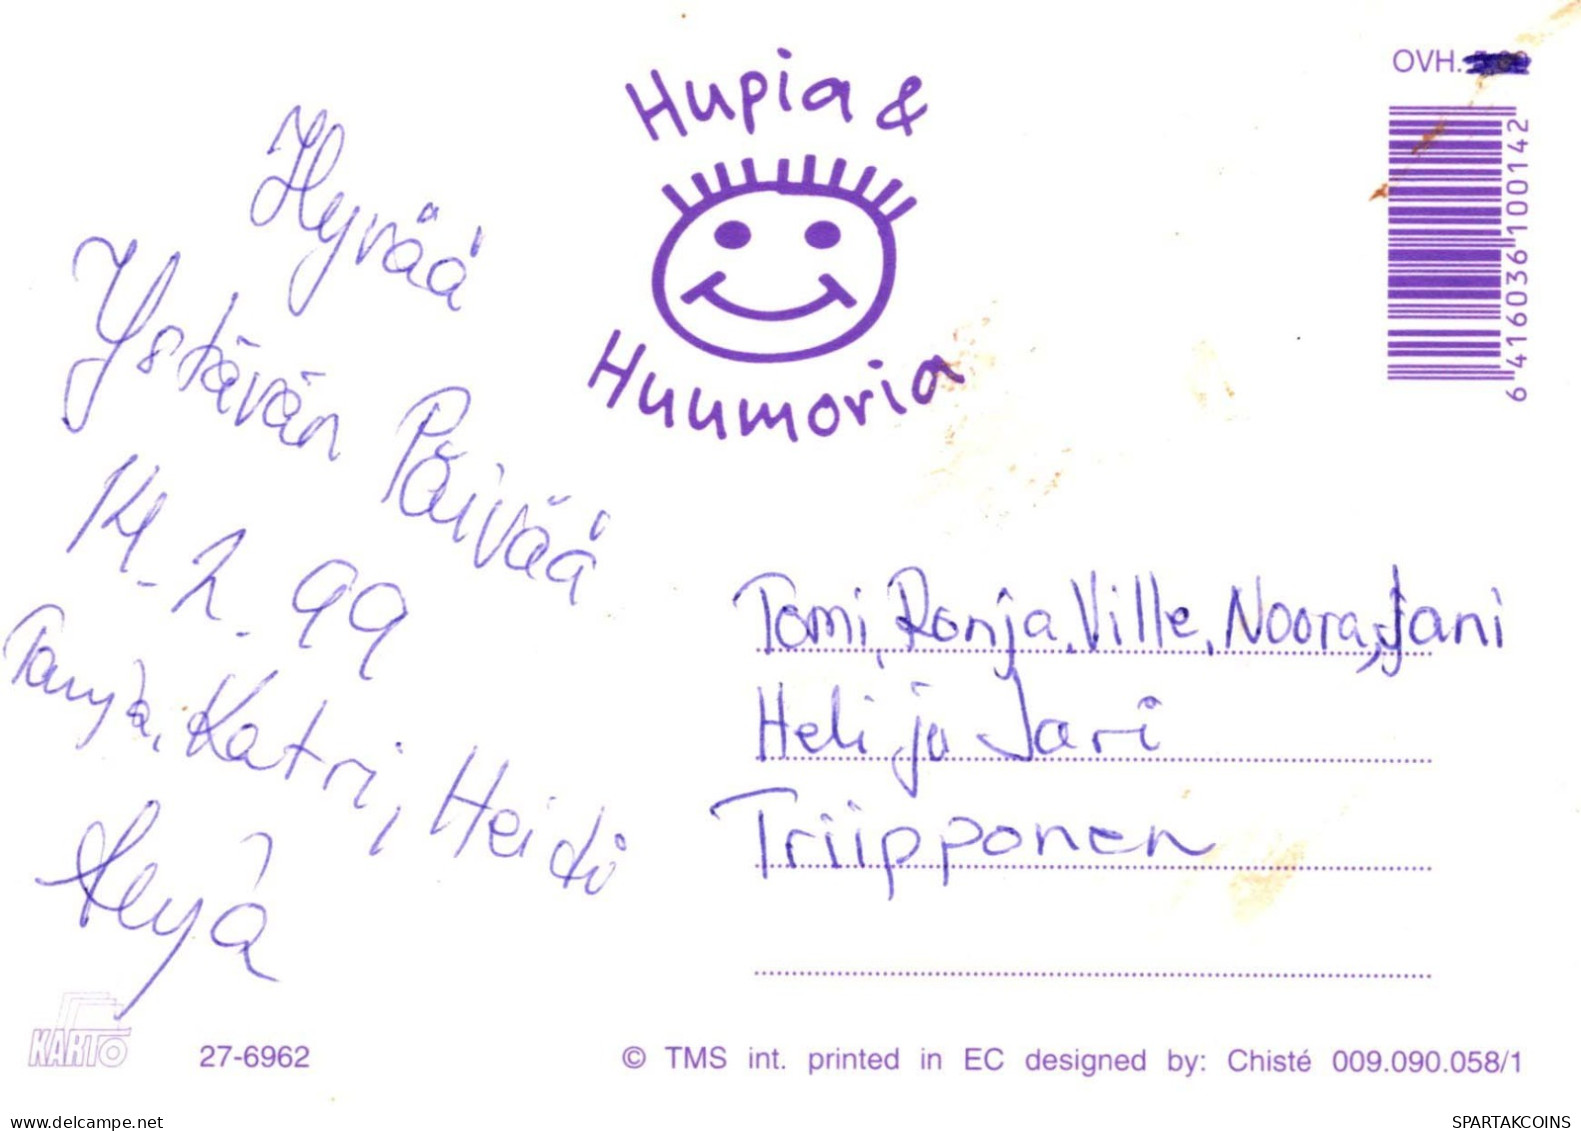 Hupia &
Huumoria
OVH.
6 416036 100142
Hyvää
Ystävän Päivää
14.2.99
Tanja, Katri, Heidi
Tomi, Ronja, Ville, Noora, Jani
Heli ja Jari
Triipponen
KARTO
27-6962
© TMS int. printed in EC designed by: Chisté 009.090.058/1
delcampe.net
SPARTAKCOINS